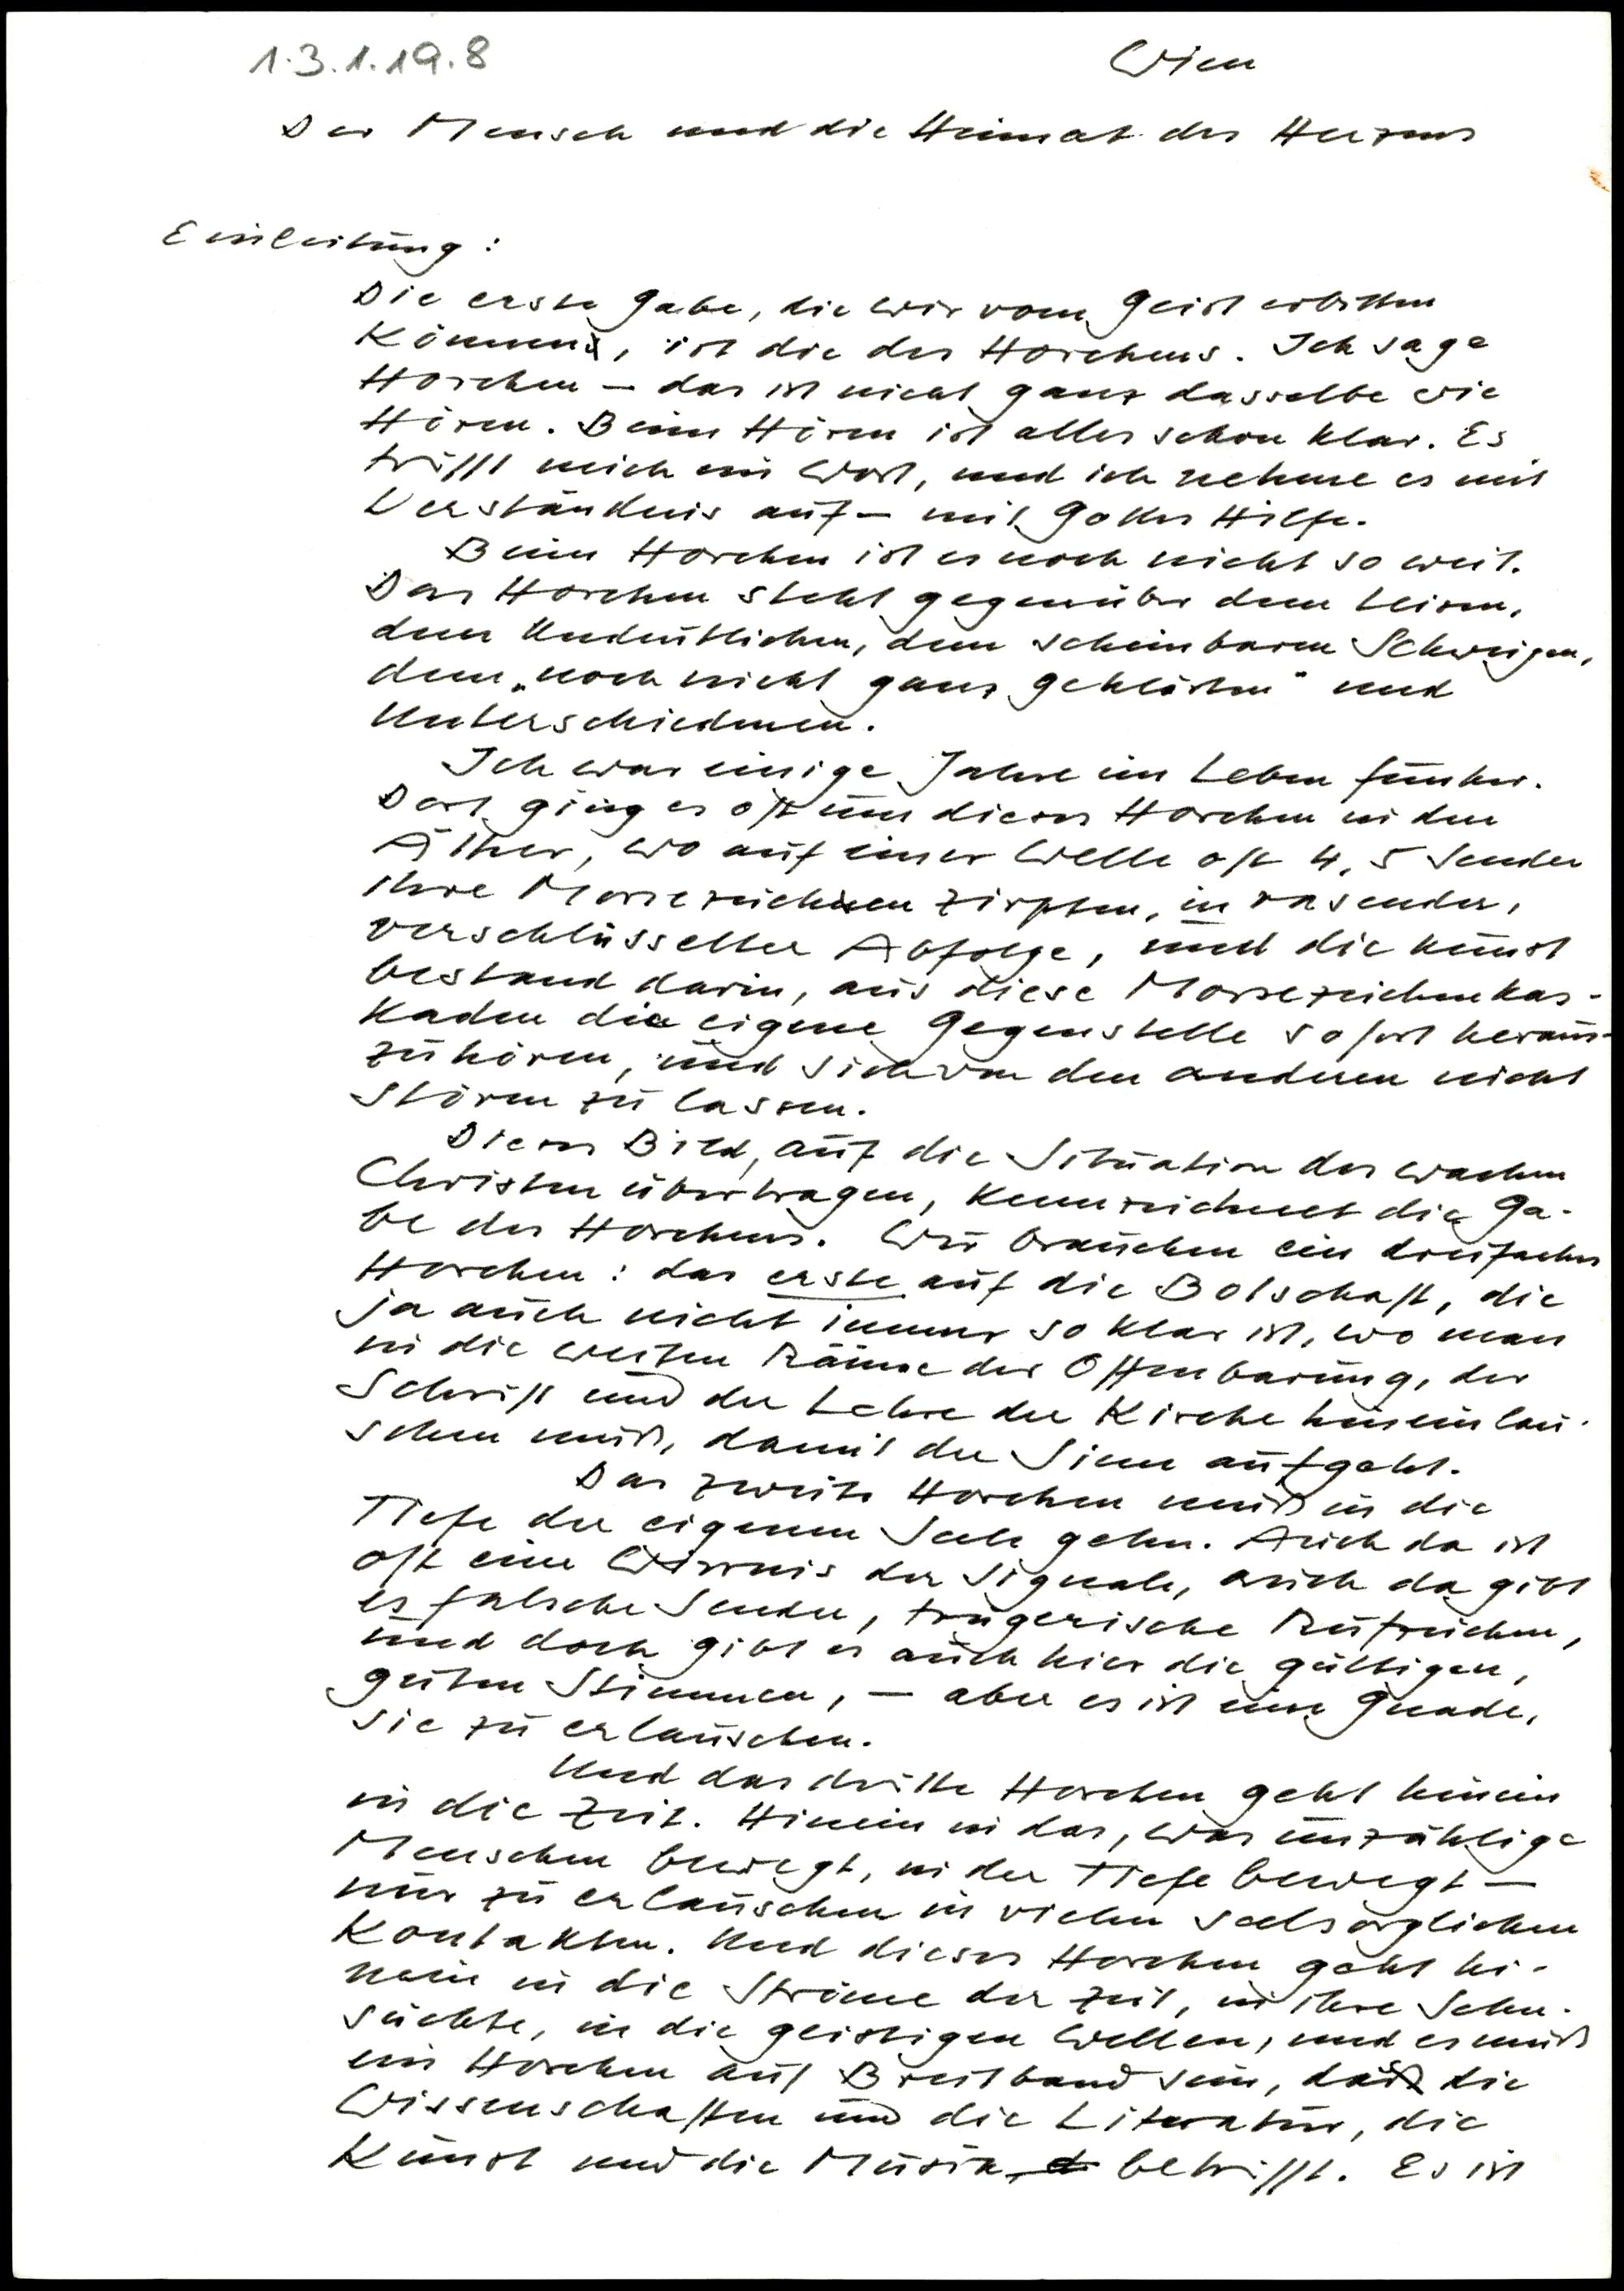 1.3.1.19.8
Wien
Der Mensch und die Heimat des Herzens
Einleitung:
Die erste Gabe, die wir vom Geist erbitten
können, ist die des Horchens. Ich sage
Horchen – das ist nicht ganz dasselbe wie
Hören. Beim Hören ist alles schon klar. Es
trifft mich ein Wort, und ich nehme es mit
Verständnis auf – mit Gottes Hilfe.
Beim Horchen ist es noch nicht so weit.
Das Horchen steht gegenüber dem Leisen,
dem Undeutlichen, dem scheinbaren Schweigen,
dem „noch nicht ganz Geklärten" und
Unterschiedenen.
Ich war einige Jahre im Leben Funker.
Dort ging es oft um dieses Horchen in den
Äther, wo auf einer Welle oft 4, 5 Sender
ihre Morsezeichen zirpten, in rasender,
verschlüsselter Abfolge, und die Kunst
bestand darin, aus diese Morsezeichenkas-
kaden die eigene Gegenstelle sofort heraus-
zuhören, und sich von den anderen nicht
stören zu lassen.
Dieses Bild, auf die Situation des wachen
Christen übertragen, kennzeichnet die Ga-
be des Horchens. Wir brauchen ein dreifaches
Horchen: das erste auf die Botschaft, die
ja auch nicht immer so klar ist, wo man
in die weiten Räume der Offenbarung, der
Schrift und der Lehre der Kirche hineinlau-
schen muß, damit der Sinn aufgeht.
Das zweite Horchen muß in die
Tiefe der eigenen Seele gehen. Auch da ist
oft eine Wirrnis der Signale, auch da gibt
es falsche Sender, trügerische Rufzeichen,
und doch gibt es auch hier die gültigen,
guten Stimmen, – aber es ist eine Gnade,
sie zu erlauschen.
Und das dritte Horchen geht hinein
in die Zeit. Hinein in das, was unzählige
Menschen bewegt, in der Tiefe bewegt –
nur zu erlauschen in vielen seelsorglichen
Kontakten. Und dieses Horchen geht hi-
nein in die Ströme der Zeit, in ihre Sehn-
süchte, in die geistigen Wellen, und es muß
ein Horchen auf Breitband sein, daß die
Wissenschaften und die Literatur, die
Kunst und die Musik betrifft. Es ist